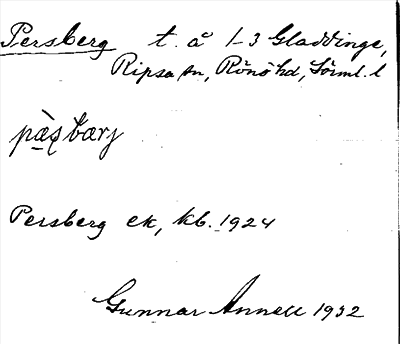 Persberg t. å 1-3 Gladdinge,
Ripsa sn, Rönö hd, Sörml. l
Persberg ek, kb. 1924
Gunnar Annell 1932